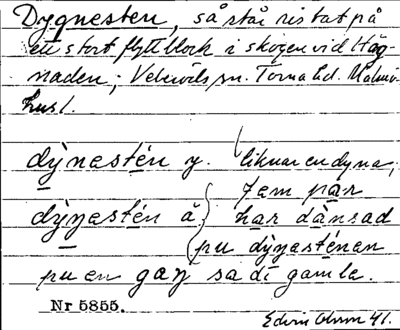 Dygnesten, så står ristat på
ett stort flyttblock i skogen vid Häg-
naden; Veberöds sn. Torna hd. Malmö-
hus l.
dỳnestén y. liknar en dyna;
fem pàr
dỳŋestén å har dànsad
pu dỳŋesténan
pu en gaŋ sa di gamla.
Nr 5855.
Edvin Ohlson 41.